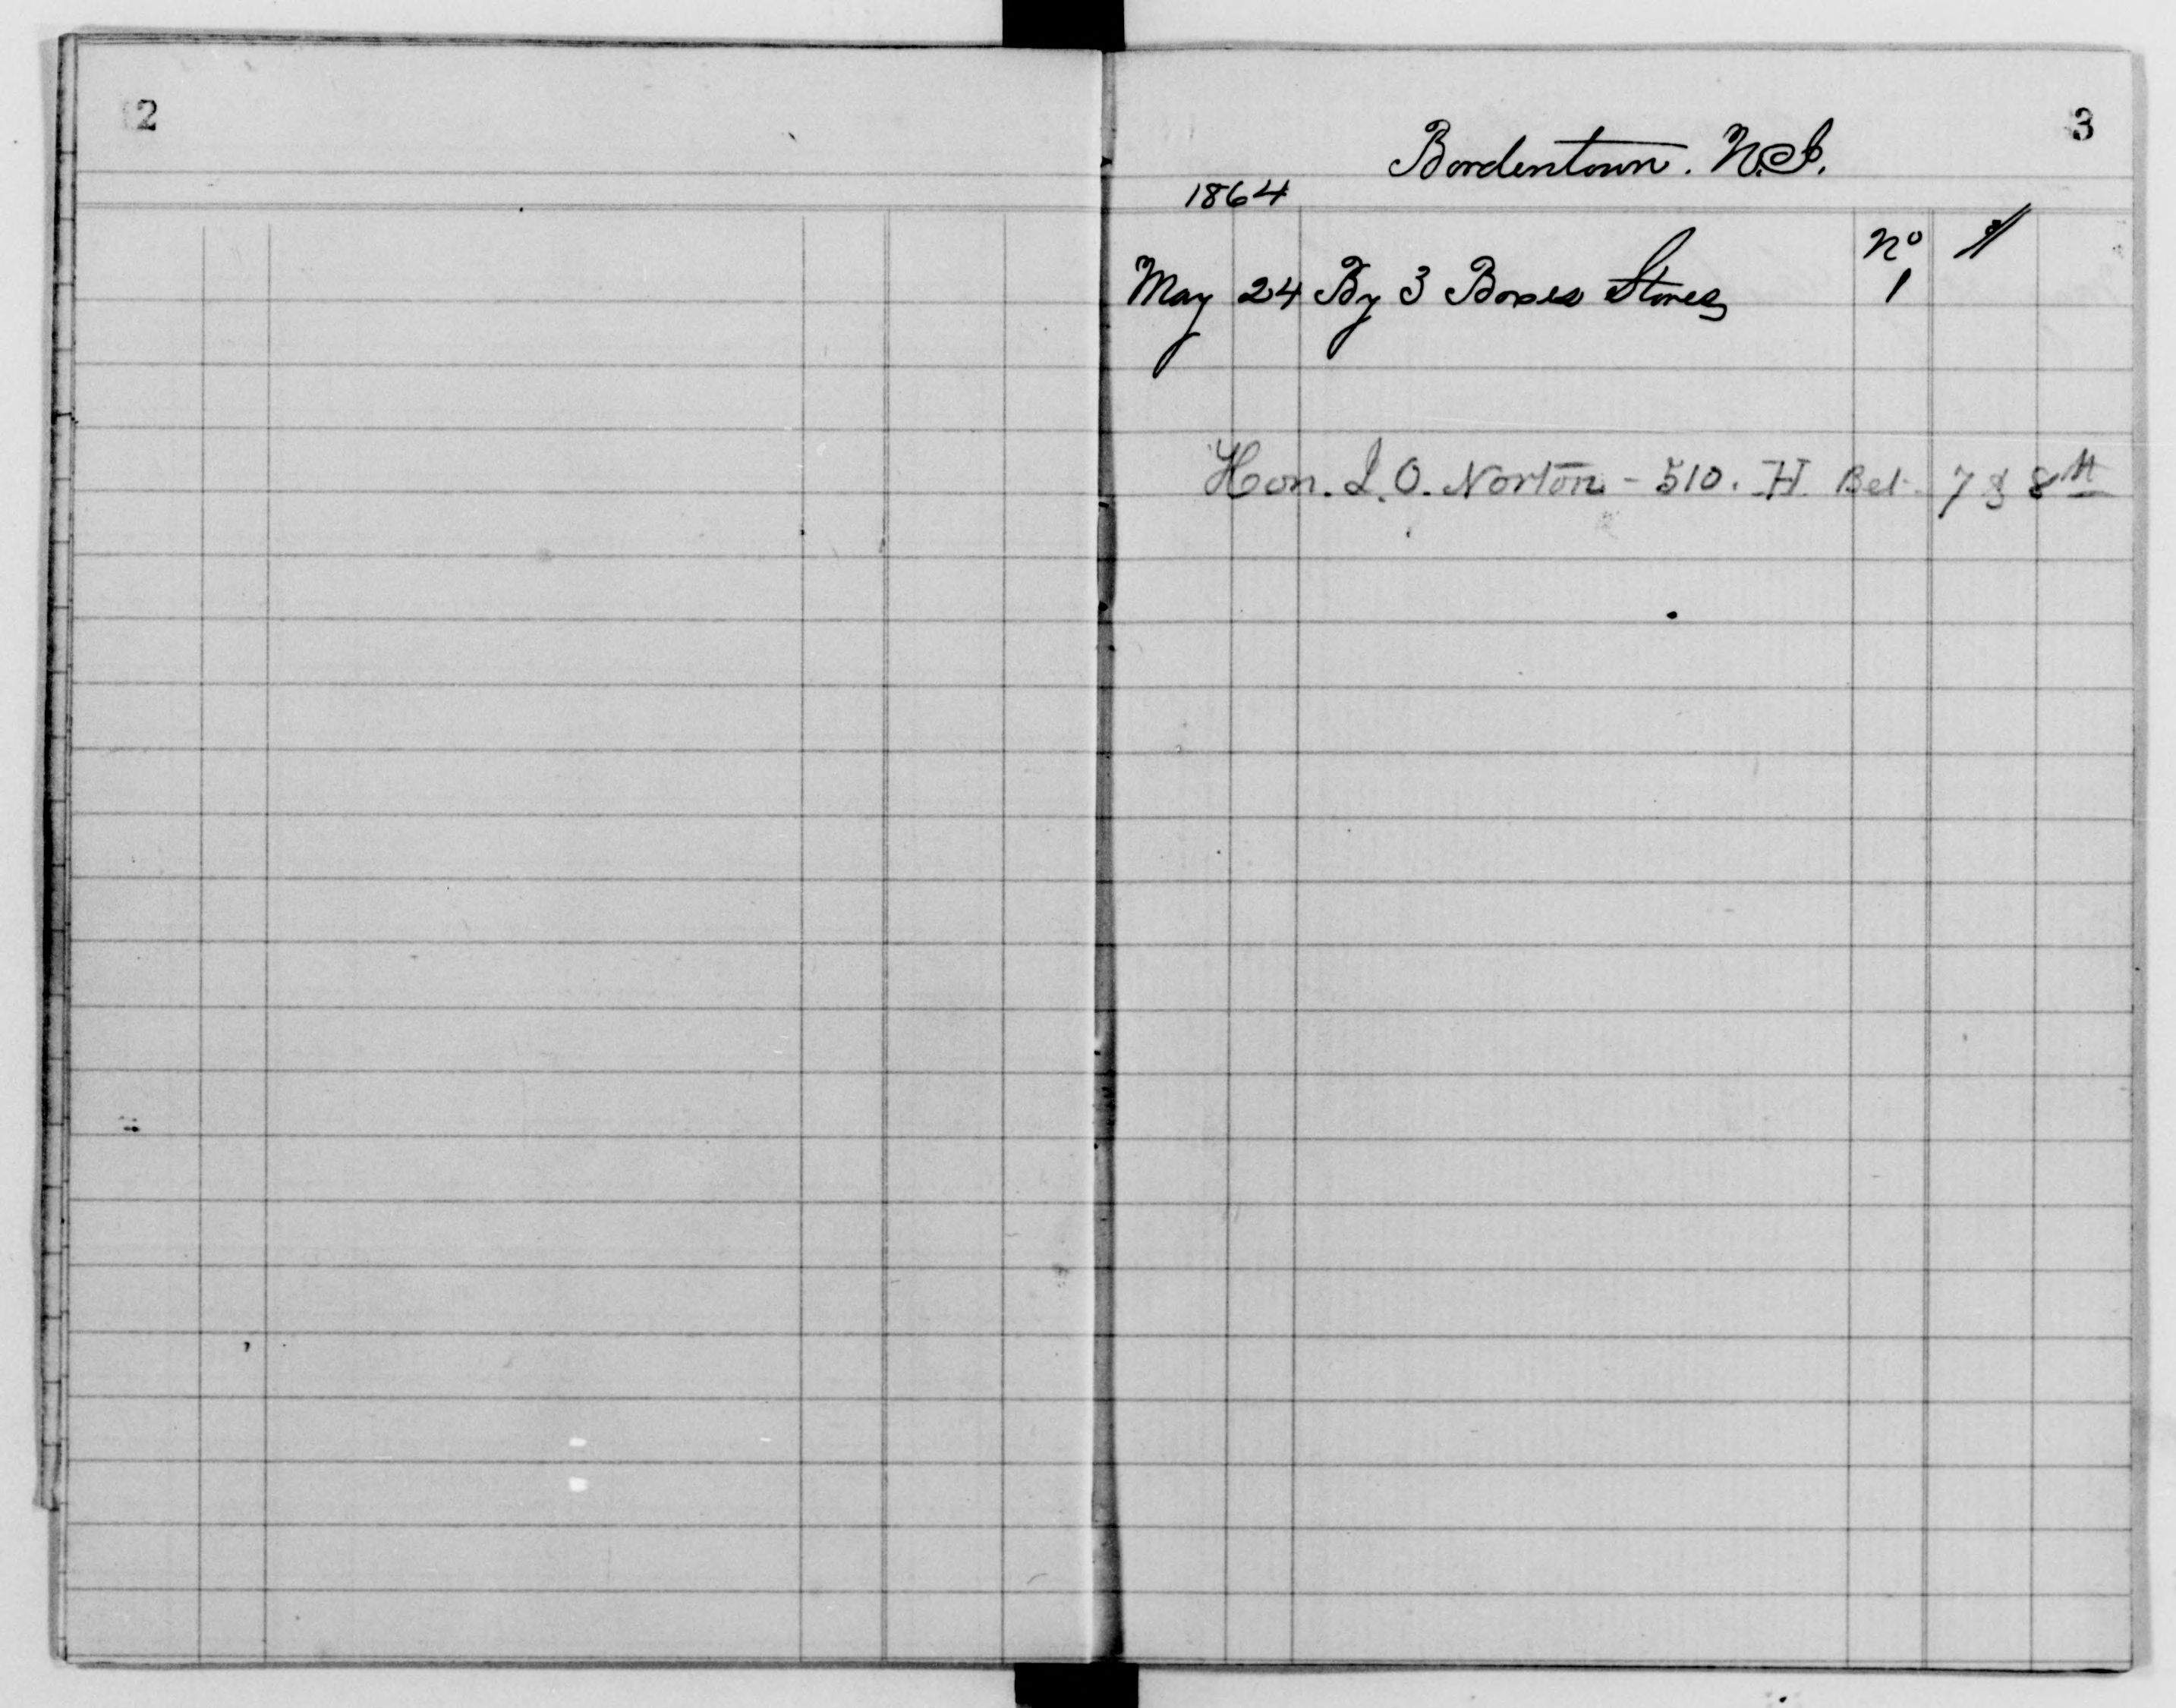 2
3
Bordentown. N.J.
1864
No
May 24 By 3 Boxes Stores 1
Hon. J. O. Norton - 510. H. Bet. 7 & 8th